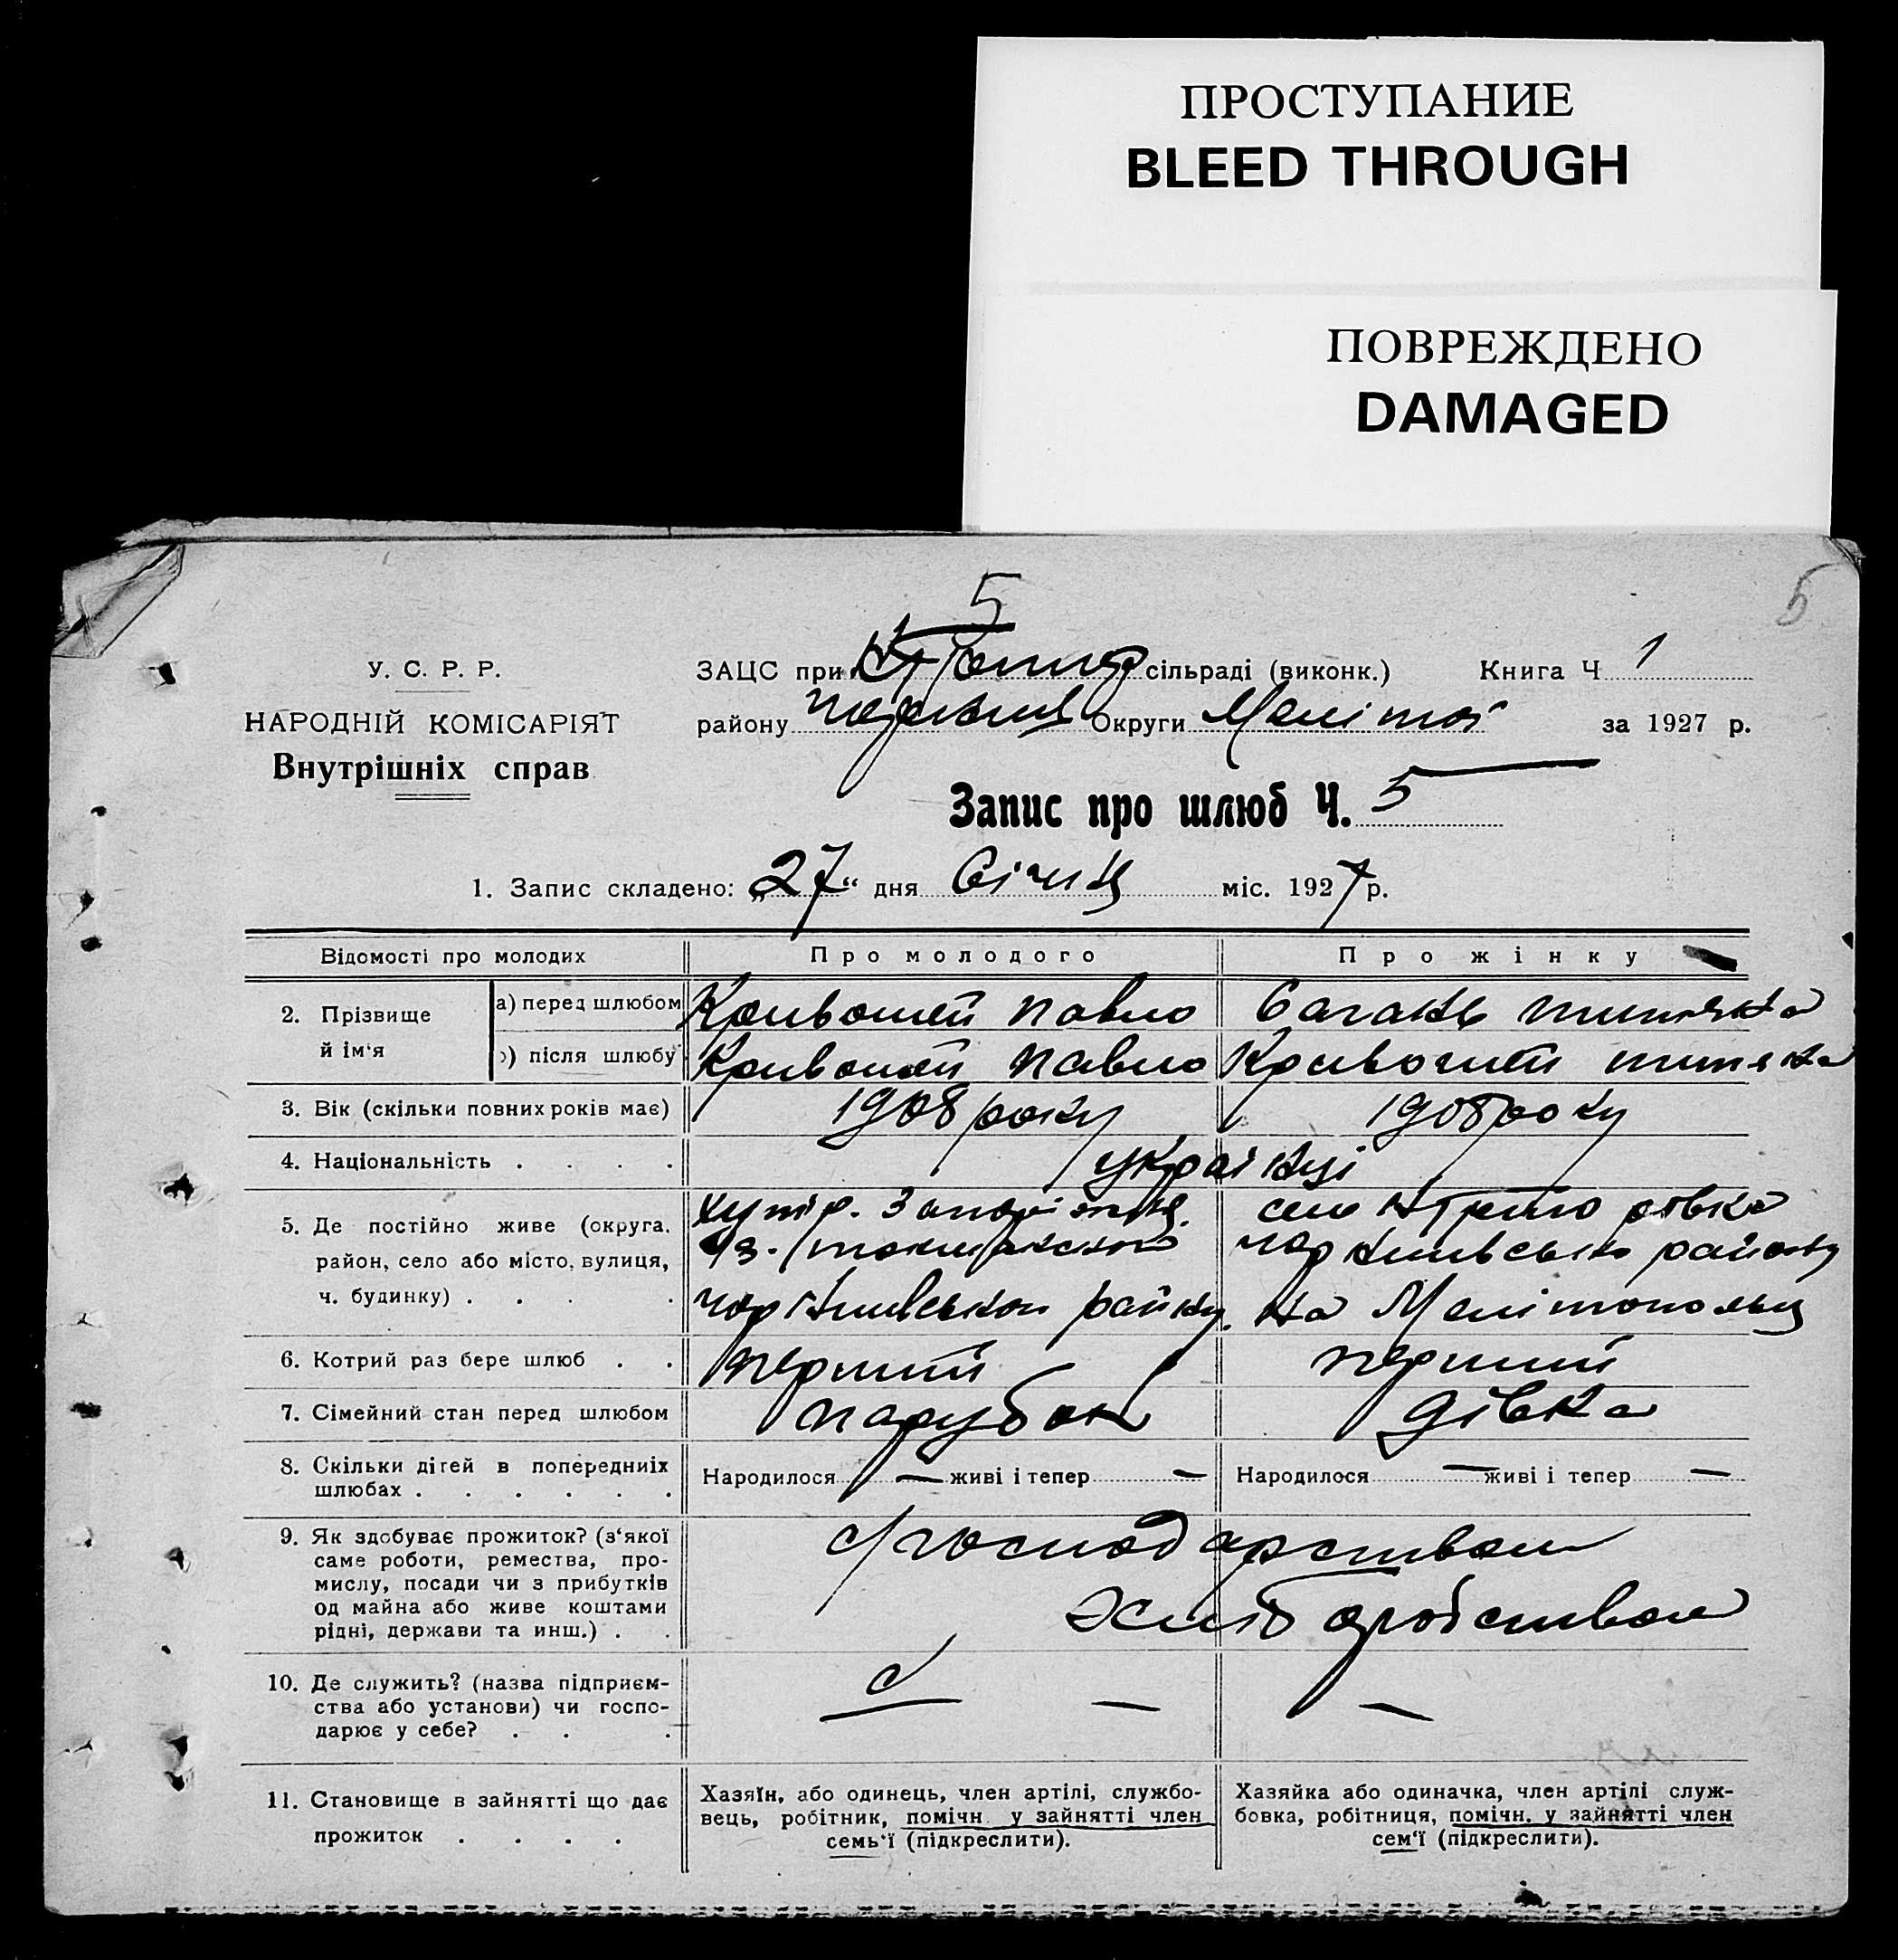 ПРОСТУПАНИЕ
BLEED THROUGH
ПОВРЕЖДЕНО
DAMAGED
5
5
У. С. Р. Р.
ЗАЦС при сільраді (виконк.) Книга Ч 1
НАРОДНІЙ КОМІСАРІЯТ
району Округи Мелітоп за 1927 р.
Внутрішніх справ
Запис про шлюб Ч. 5
1. Запис складено: „27“ дня Січня міс. 1927 р.
Відомості про молодих Про молодого Про жінку
2. Прізвище й ім'я
а) перед шлюбом Кривошей Павло
) після шлюбу Кривошей Павло Кривошей
3. Вік (скільки повних років має) 1908 року 1908 року
4. Національність . . . . українці
5. Де постійно живе (округа, район, село або місто, вулиця, ч. будинку) . . . .
хутір. село
району
району на Мелітопольщ
6. Котрий раз бере шлюб . . перший перший
7. Сімейний стан перед шлюбом парубок дівка
8. Скільки дітей в попередниіх шлюбах . . . . . .
Народилося — живі і тепер — Народилося — живі і тепер —
9. Як здобуває прожиток? (з'якої
саме роботи, ремества, про-
мислу, посади чи з прибутків
од майна або живе коштами
рідні, держави та инш.) . .
господарством
хліборобством
10. Де служить? (назва підприєм-
ства або установи) чи госпо-
дарює у себе? . . .
— — —
11. Становище в зайнятті що дає
прожиток . . . .
Хазяїн, або одинець, член артілі, службо-
вець, робітник, помічн. у зайнятті член
семь'ї (підкреслити).
Хазяйка або одиначка, член артілі служ-
бовка, робітниця, помічн. у зайнятті член
сем'ї (підкреслити).